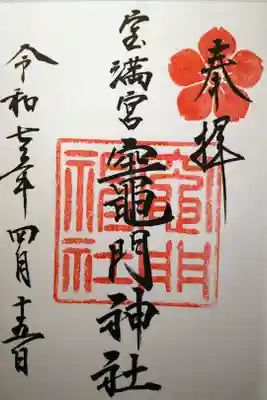 奉拝
宝満宮
竈門神社
令和七年四月十五日
竈門神社